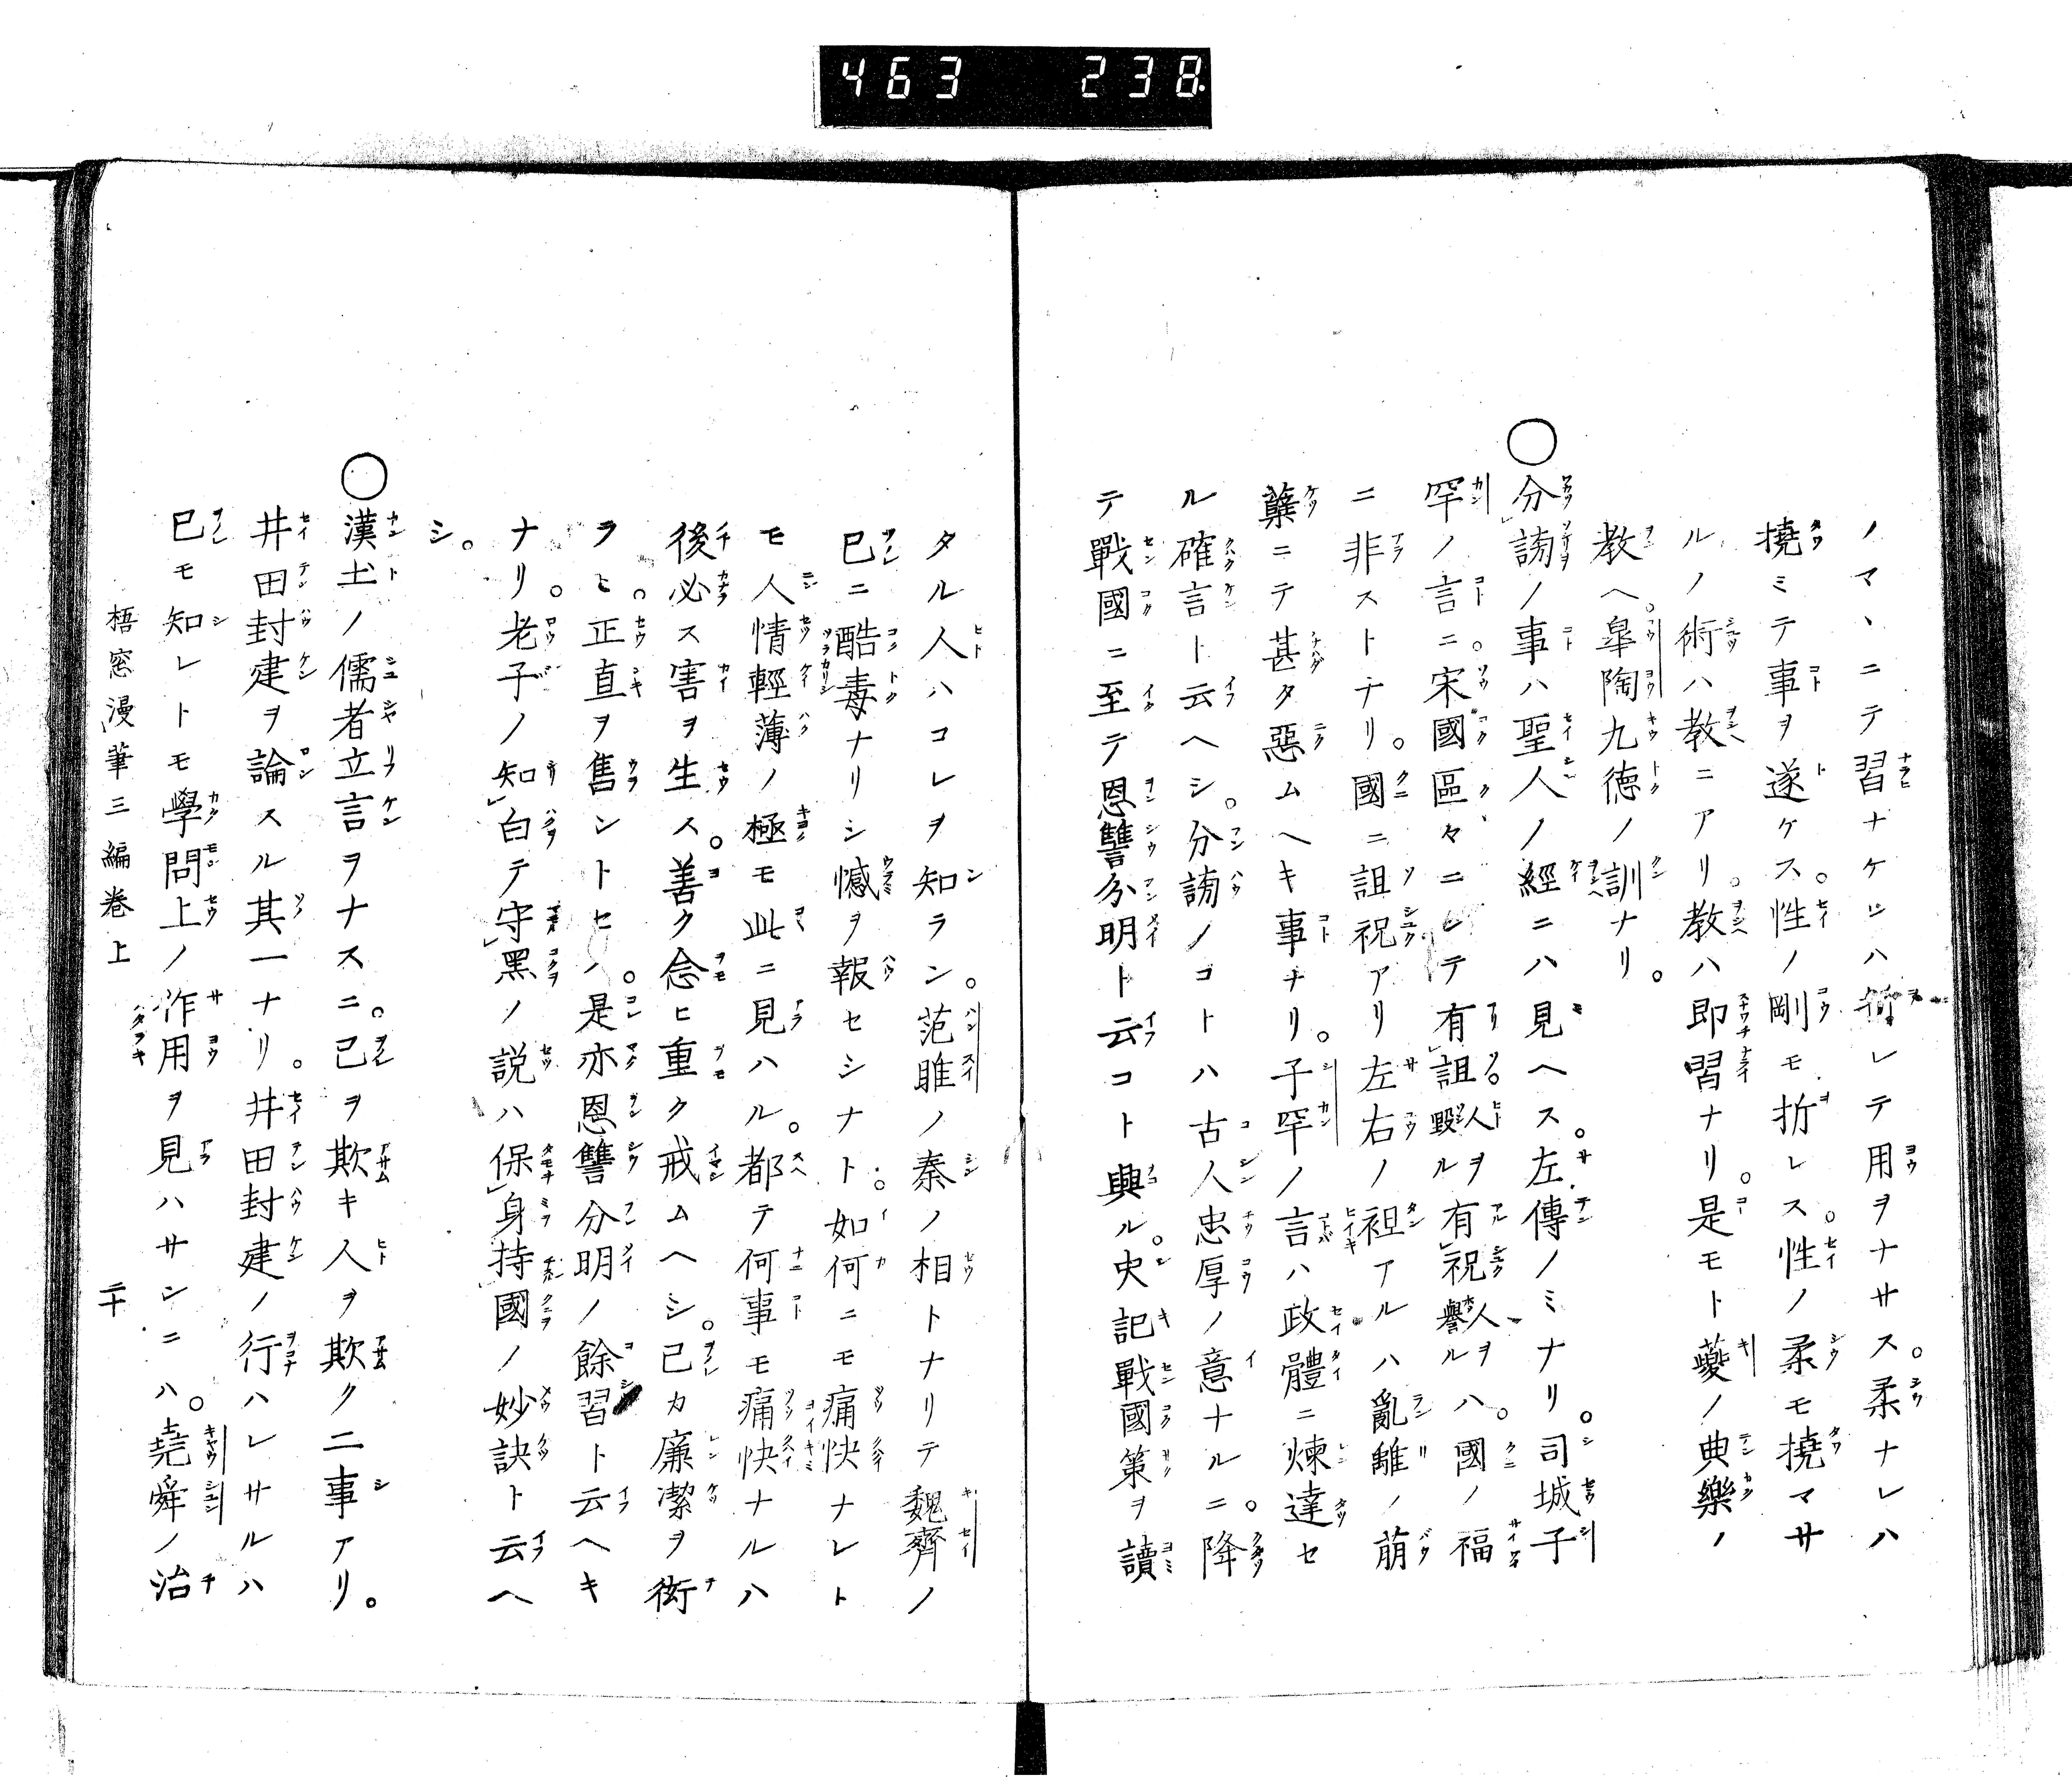 463 238
ノマヽニテ習ナケレハ折レテ用ヲナサス。柔ナレハ
撓ミテ事ヲ遂ケス。性ノ剛モ折レス。性ノ柔モ撓マサ
ルノ術ハ教ニアリ。教ハ即習ナリ。是モト夔ノ典樂ノ
教ヘ。皐陶九徳ノ訓ナリ。
○分謗ノ事ハ聖人ノ經ニハ見ヘス。左傳ノミナリ。司城子
罕ノ言ニ。宋國區々ニシテ有詛毀人ヲルヲ有祝譽人ヲルハ。國ノ福
ニ非ストナリ。國ニ詛祝アリ左右ノ袒アルハ亂離ノ萠
蘖ニテ甚タ惡ムヘキ事ナリ。子罕ノ言ハ政體ニ煉達セ
ル確言ト云ヘシ。分謗ノコトハ古人忠厚ノ意ナルニ。降
テ戰國ニ至テ恩讐分明ト云コト興ル。史記戰國策ヲ讀
タル人ハコレヲ知ラン。范睢ノ秦ノ相トナリテ魏齊ノ
已ニ酷毒ナリシ憾ヲ報セシナト。如何ニモ痛快ナレト
モ人情輕薄ノ極モ此ニ見ハル。都テ何事モ痛快ナルハ
後必ス害ヲ生ス。善ク念ヒ重ク戒ムヘシ。己カ廉潔ヲ衒
ヲヒ。正直ヲ售ントセハ。是亦恩讐分明ノ餘習ト云ヘキ
ナリ。老子ノ知白テ守黑ノ説ハ保身持國ノ妙訣ト云ヘ
シ。
○漢土ノ儒者立言ヲナスニ。己ヲ欺キ人ヲ欺ク二事アリ。
井田封建ヲ論スル其一ナリ。井田封建ノ行ハレサルハ
已モ知レトモ學問上ノ作用ヲ見ハサンニハ。堯舜ノ治
梧窓漫筆三編卷上 二十